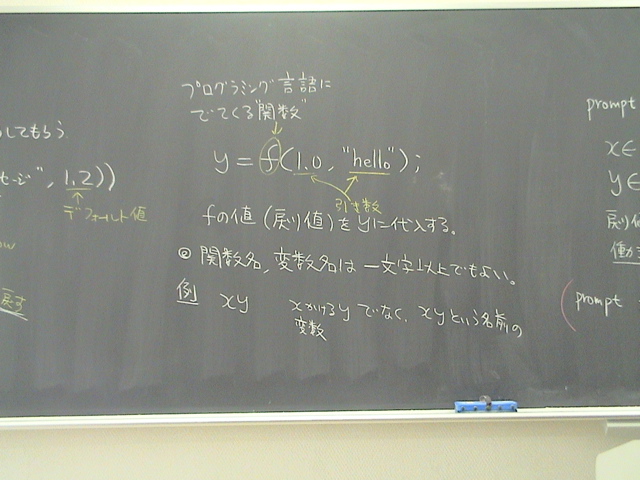 してもらう
セージ", 1,2))
デフォルト値
戻す
プログラミング言語に
でてくる"関数"
y = f(1.0, "hello");
引き数
fの値(戻り値)をyに代入する。
◎ 関数名, 変数名は一文字以上でもよい。
例 xy xかけるyでなく, xyという名前の
変数
prompt
x∈
y∈
戻り値
prompt